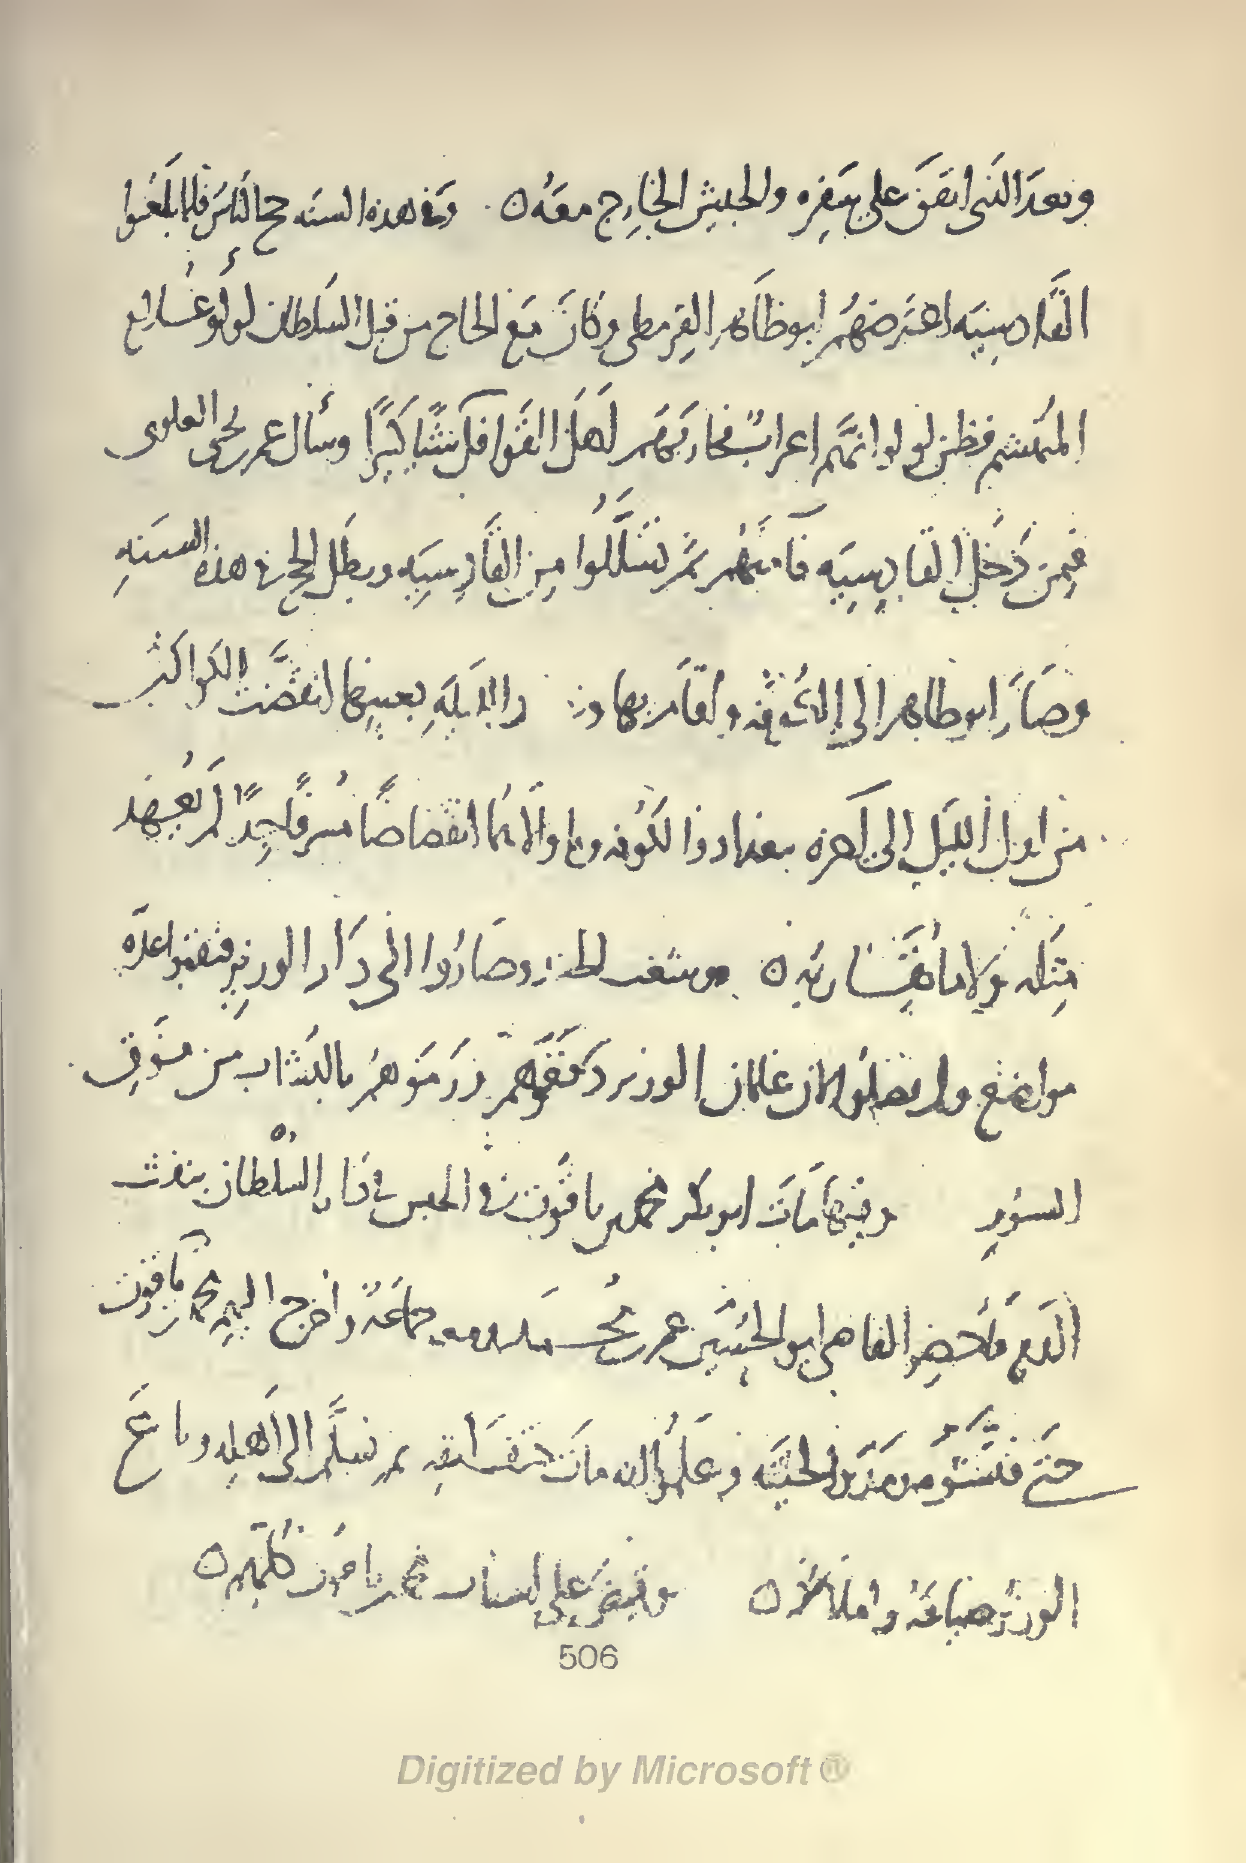 وبعد الذي انفق على سفره والجيش الخارج معه ه وفي هذه السنه حج الناس فلما بلغوا
القادسيه اعترضهم ابو طاهر القرمطي وكان مع الحاج من قبل السلطان لولو غلام
المتهشم فظن لولو انهم اعراب فحاربهم اهل القوافل شيا كبيرًا وسأل عمر بن يحيى العلوي
فيمن دخل القادسيه فآمنهم ثم تسللوا من القادسيه وبطل الحج في هذه السنه
وصار ابو طاهر الى الكوفه واقام بها وفي الليله بعينها انقضت الكواكب
من اول الليل الى آخره ببغداد والكوفه وما والاهما انقضاضًا مسرفًا جدًا لم يعهد
مثله ولا ما يقاربه ه وشغب الجند وصاروا الى دار الوزير فنقبوا عدة
مواضع ولم يصلوا لان غلمان الوزير دفعوهم ورموهم بالنشاب من فوق
السور وفيها مات ابو بكر محمد بن ياقوت في الحبس في دار السلطان بنفث
الدم فأحضر القاضي ابو الحسين عمر بن محمد ومعه جماعة واخرج اليهم محمد بن ياقوت
حتى فتشوه ومدوا لحيته وعلموا انه مات حتف انفه ثم تسلم الى اهله وباع
الوزير ضياعه واملاكه ه وقبض على اسباب محمد بن ياقوت كلهم ه
506
Digitized by Microsoft ®